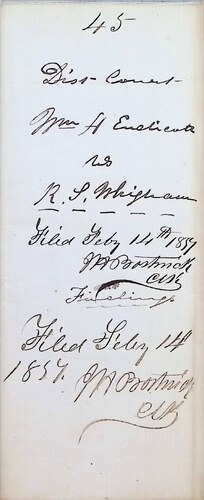 45
Dist Court
Wm H Endicott
vs
R. S. Whigham
Filed Feby 14th 1857
J H Bostwick
Clk
Filed Feby 14
1857. J H Bostwick
Clk